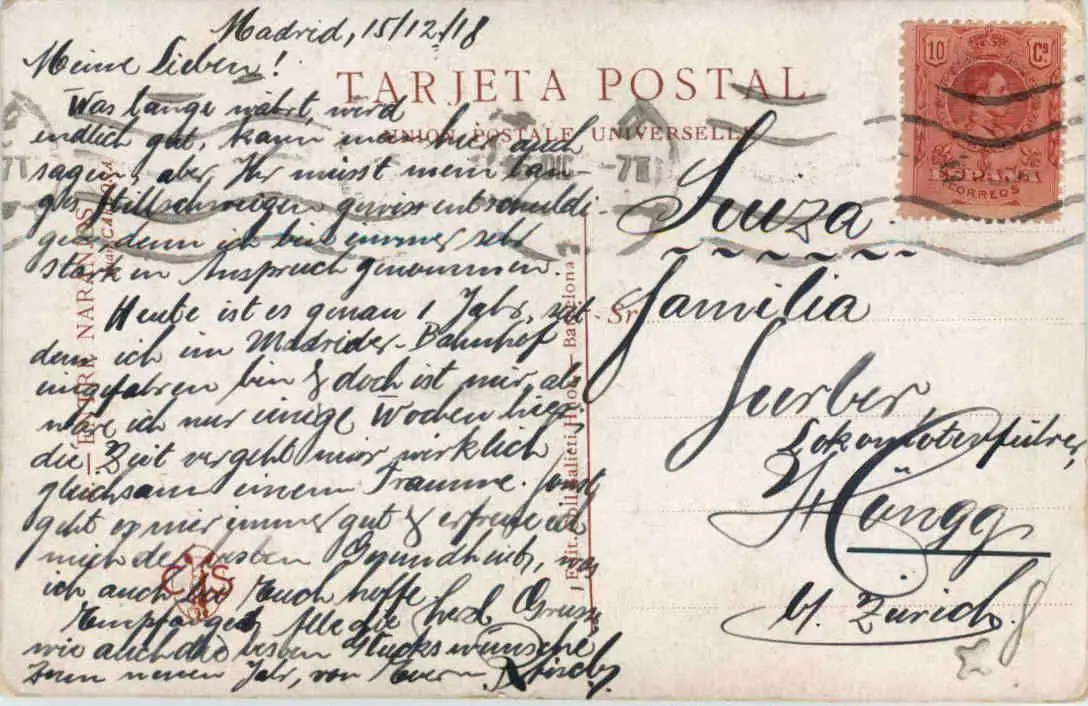 Madrid, 15/12/18
Meine Lieben!
Was lange währt, wird
endlich gut, kann man hier auch
sagen, aber Ihr müsst mein lan-
ges Stillschweigen gewiss entschuldi-
gen, denn ich bin immer sehr
stark in Anspruch genommen.
Heute ist es genau 1 Jahr, seit
dem ich im Madrider-Bahnhof
eingefahren bin & doch ist mir, als
wäre ich nur einige Wochen hier,
die Zeit vergeht mir wirklich
gleichsam einem Traume. Sonst
geht es mir immer gut & erfreue ich
mich der besten Gesundheit, was
ich auch bei Euch hoffe.
Empfanget Alle die herzl. Grüsse
wie auch die besten Glückswünsche
zum neuen Jahr, von Euerm
TARJETA POSTAL
UNION POSTALE UNIVERSELLE
10 Cs
ESPAÑA
CORREOS
Suiza
Sr. Familia
Surber,
Lokomotivführer,
Höngg
b/ Zürich
ENTRE NARANJOS
Barcelona